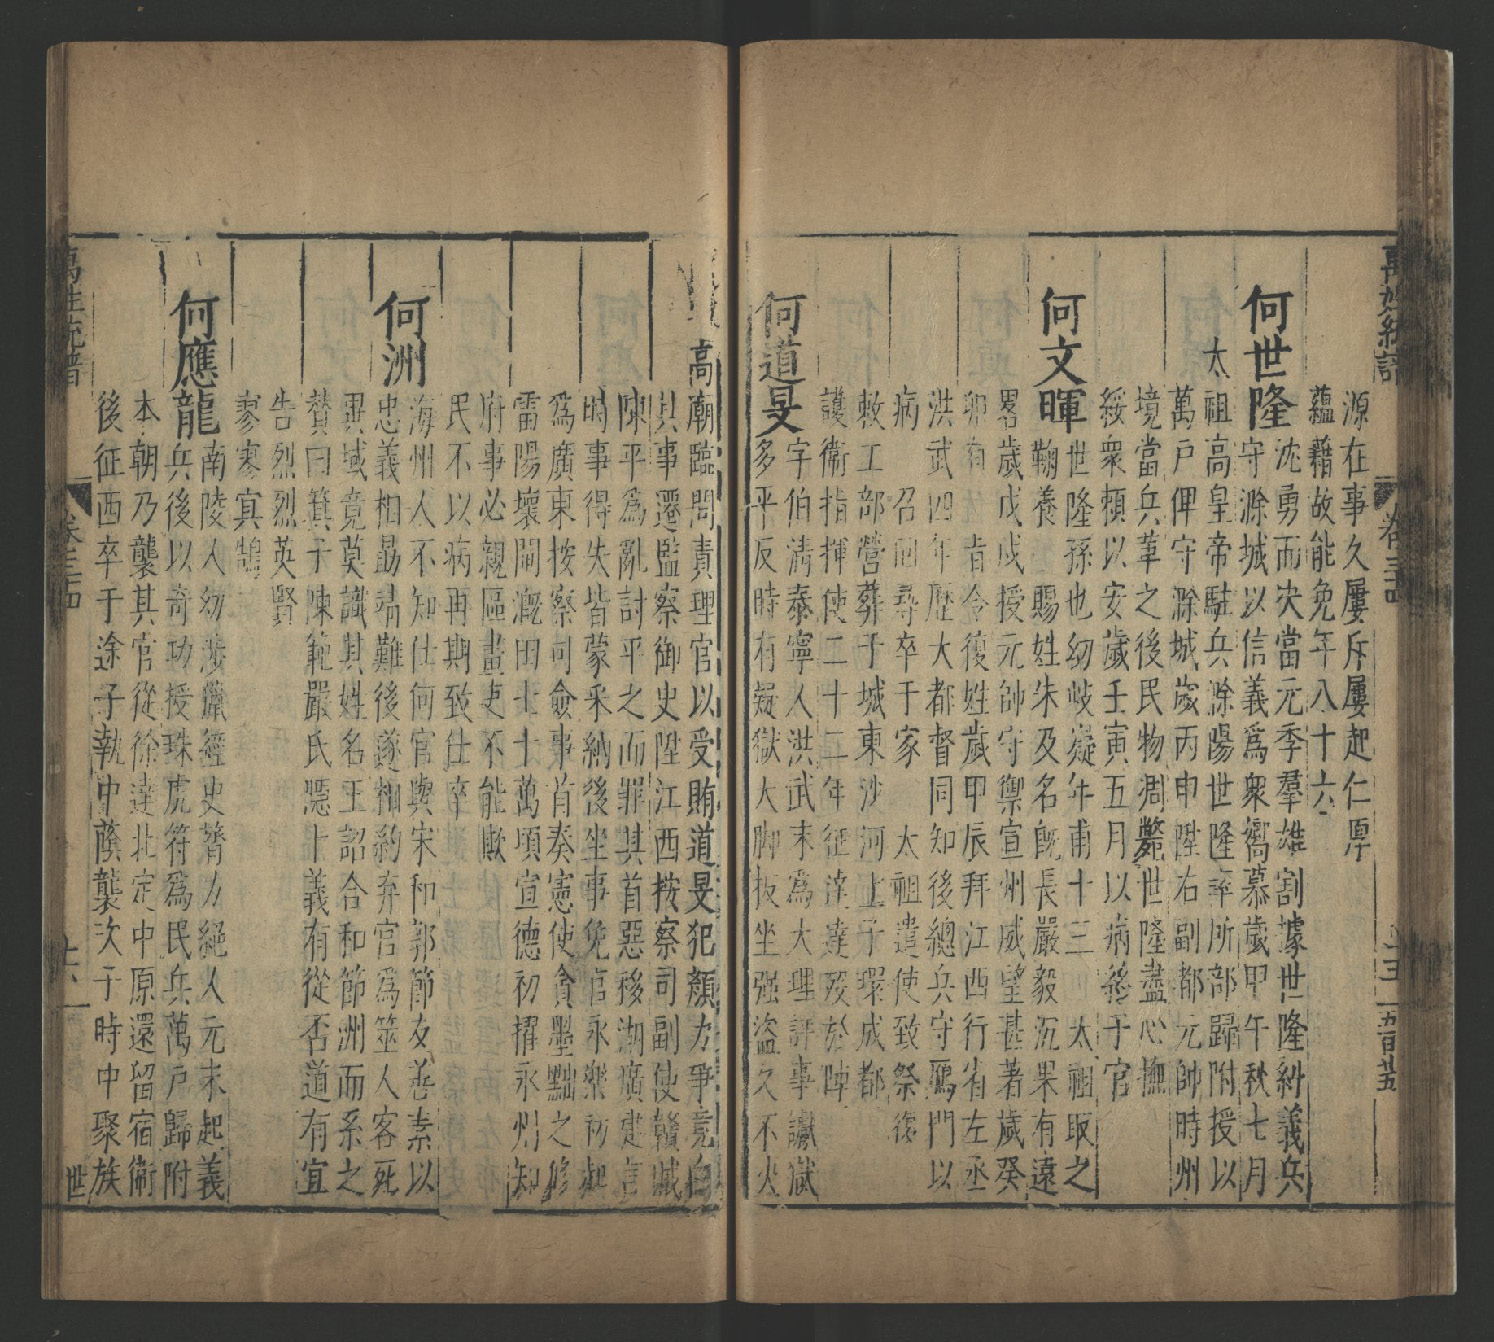 萬姓統譜
卷三十四
五百廿五
源在事久屢斥屢起仁厚
蘊藉故能免年八十六
何世隆
沈勇而决當元季羣雄割據世隆糾義兵
守滁城以信義爲衆嚮慕歲甲午秋七月
太祖高皇帝駐兵滁陽世隆率所部歸附授以
萬戸俾守滁城歲丙申陞右副都元帥時州
境當兵革之後民物凋斃世隆盡心撫
綏衆頼以安歲壬寅五月以病終于官
何文暉
世隆孫也幼岐嶷年甫十三 太祖取之
鞠養 賜姓朱及名旣長嚴毅沉果有遠
畧歲戊戌授元帥守禦宣州威望甚著歲癸
卯有 㫖令復姓歲甲辰拜江西行省左丞
洪武四年歷大都督同知後總兵守鴈門以
病 召回尋卒于家 太祖遣使致祭復
敕工部營葬于城東沙河上子環成都
護衞指揮使二十二年征達達殁於陣
何道旻
字伯清泰寧人洪武末爲大理評事讞獄
多平反時有疑獄大脚板坐强盜久不决
高廟臨問責理官以受賄道旻犯顔力爭竟白
其事遷監察御史陞江西按察司副使贛賊
陳平爲亂討平之而罪其首惡移湖廣建言
時事得失皆蒙采納後坐事免官永樂初起
爲廣東按察司僉事首奏憲使貪墨黜之修
雷陽壞閘漑田七十萬頃宣德初擢永州知
府事必親區畫吏不能欺
民不以病再期致仕卒
何洲
海州人不知仕何官與宋和郭節友善素以
忠義相勗靖難後遂相約弃官爲筮人客死
異域竟莫識其姓名王詔合和節洲而系之
賛曰箕子陳範嚴氏隱卜義有從否道有宜
告烈烈英賢
寥寥寘鵠
何應龍
南陵人幼涉獵經史膂力絕人元末起義
兵後以奇功授珠虎符爲民兵萬戸歸附
本朝乃襲其官從徐達北定中原還留宿衞
後征西卒于途子執中蔭襲次子時中聚族
萬姓統譜
卷三十四
世